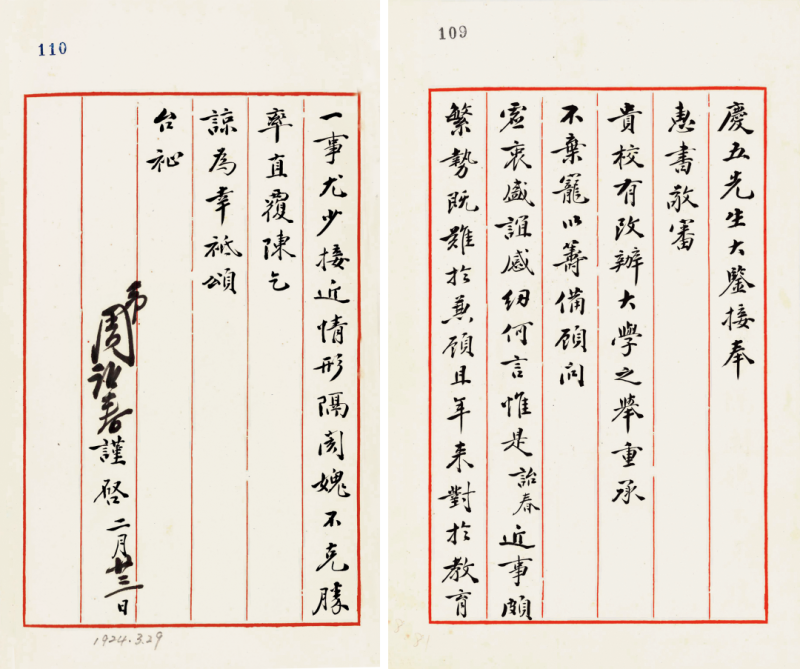 109
慶五先生大鑒接奉
惠書敬審
貴校有改辦大學之舉重承
不棄寵以籌備顧問
虛衷盛誼感紉何言惟是詒春近事頗
繁勢既難於兼顧且年來對於教育
110
一事尤少接近情形隔閡媿不克勝
率直覆陳乞
諒為幸祗頌
台祉
弟周詒春謹啓二月廿三日
1924.3.29